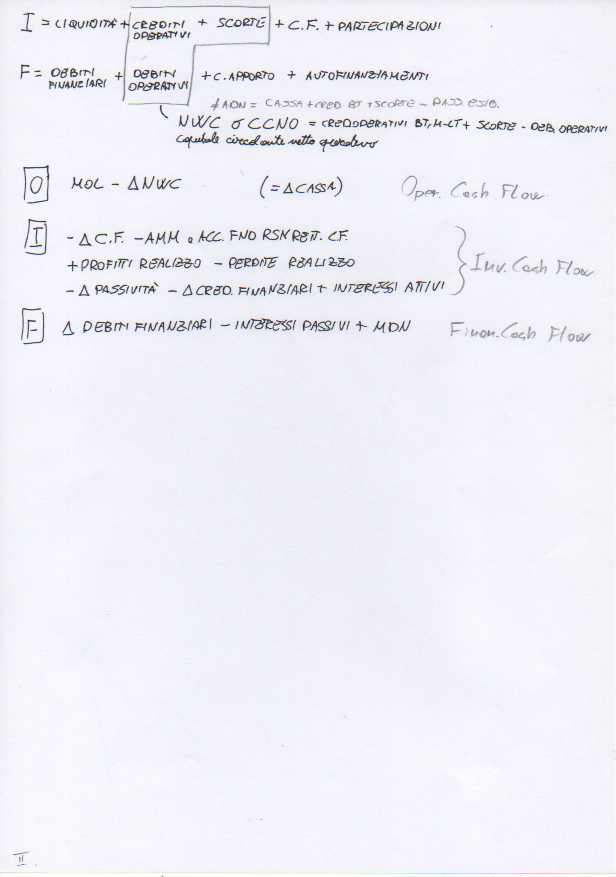 I = LIQUIDITÀ + CREDITI OPERATIVI + SCORTE + C.F. + PARTECIPAZIONI
F = DEBITI FINANZIARI + DEBITI OPERATIVI + C. APPORTO + AUTOFINANZIAMENTI
≠ ADN = CASSA + CRED. BT + SCORTE - PASS. ESIG.
NWC o CCNO = CRED OPERATIVI BT, M-LT + SCORTE - DEB. OPERATIVI
capitale circolante netto operativo
O MOL - ΔNWC (= ΔCASSA) Oper. Cash Flow
I - ΔC.F. - AMM e ACC. FNO RSK RETT. C.F.
+ PROFITTI REALIZZO - PERDITE REALIZZO Inv. Cash Flow
- Δ PASSIVITÀ - Δ CRED. FINANZIARI + INTERESSI ATTIVI
F Δ DEBITI FINANZIARI - INTERESSI PASSIVI + MDN Finan. Cash Flow
II